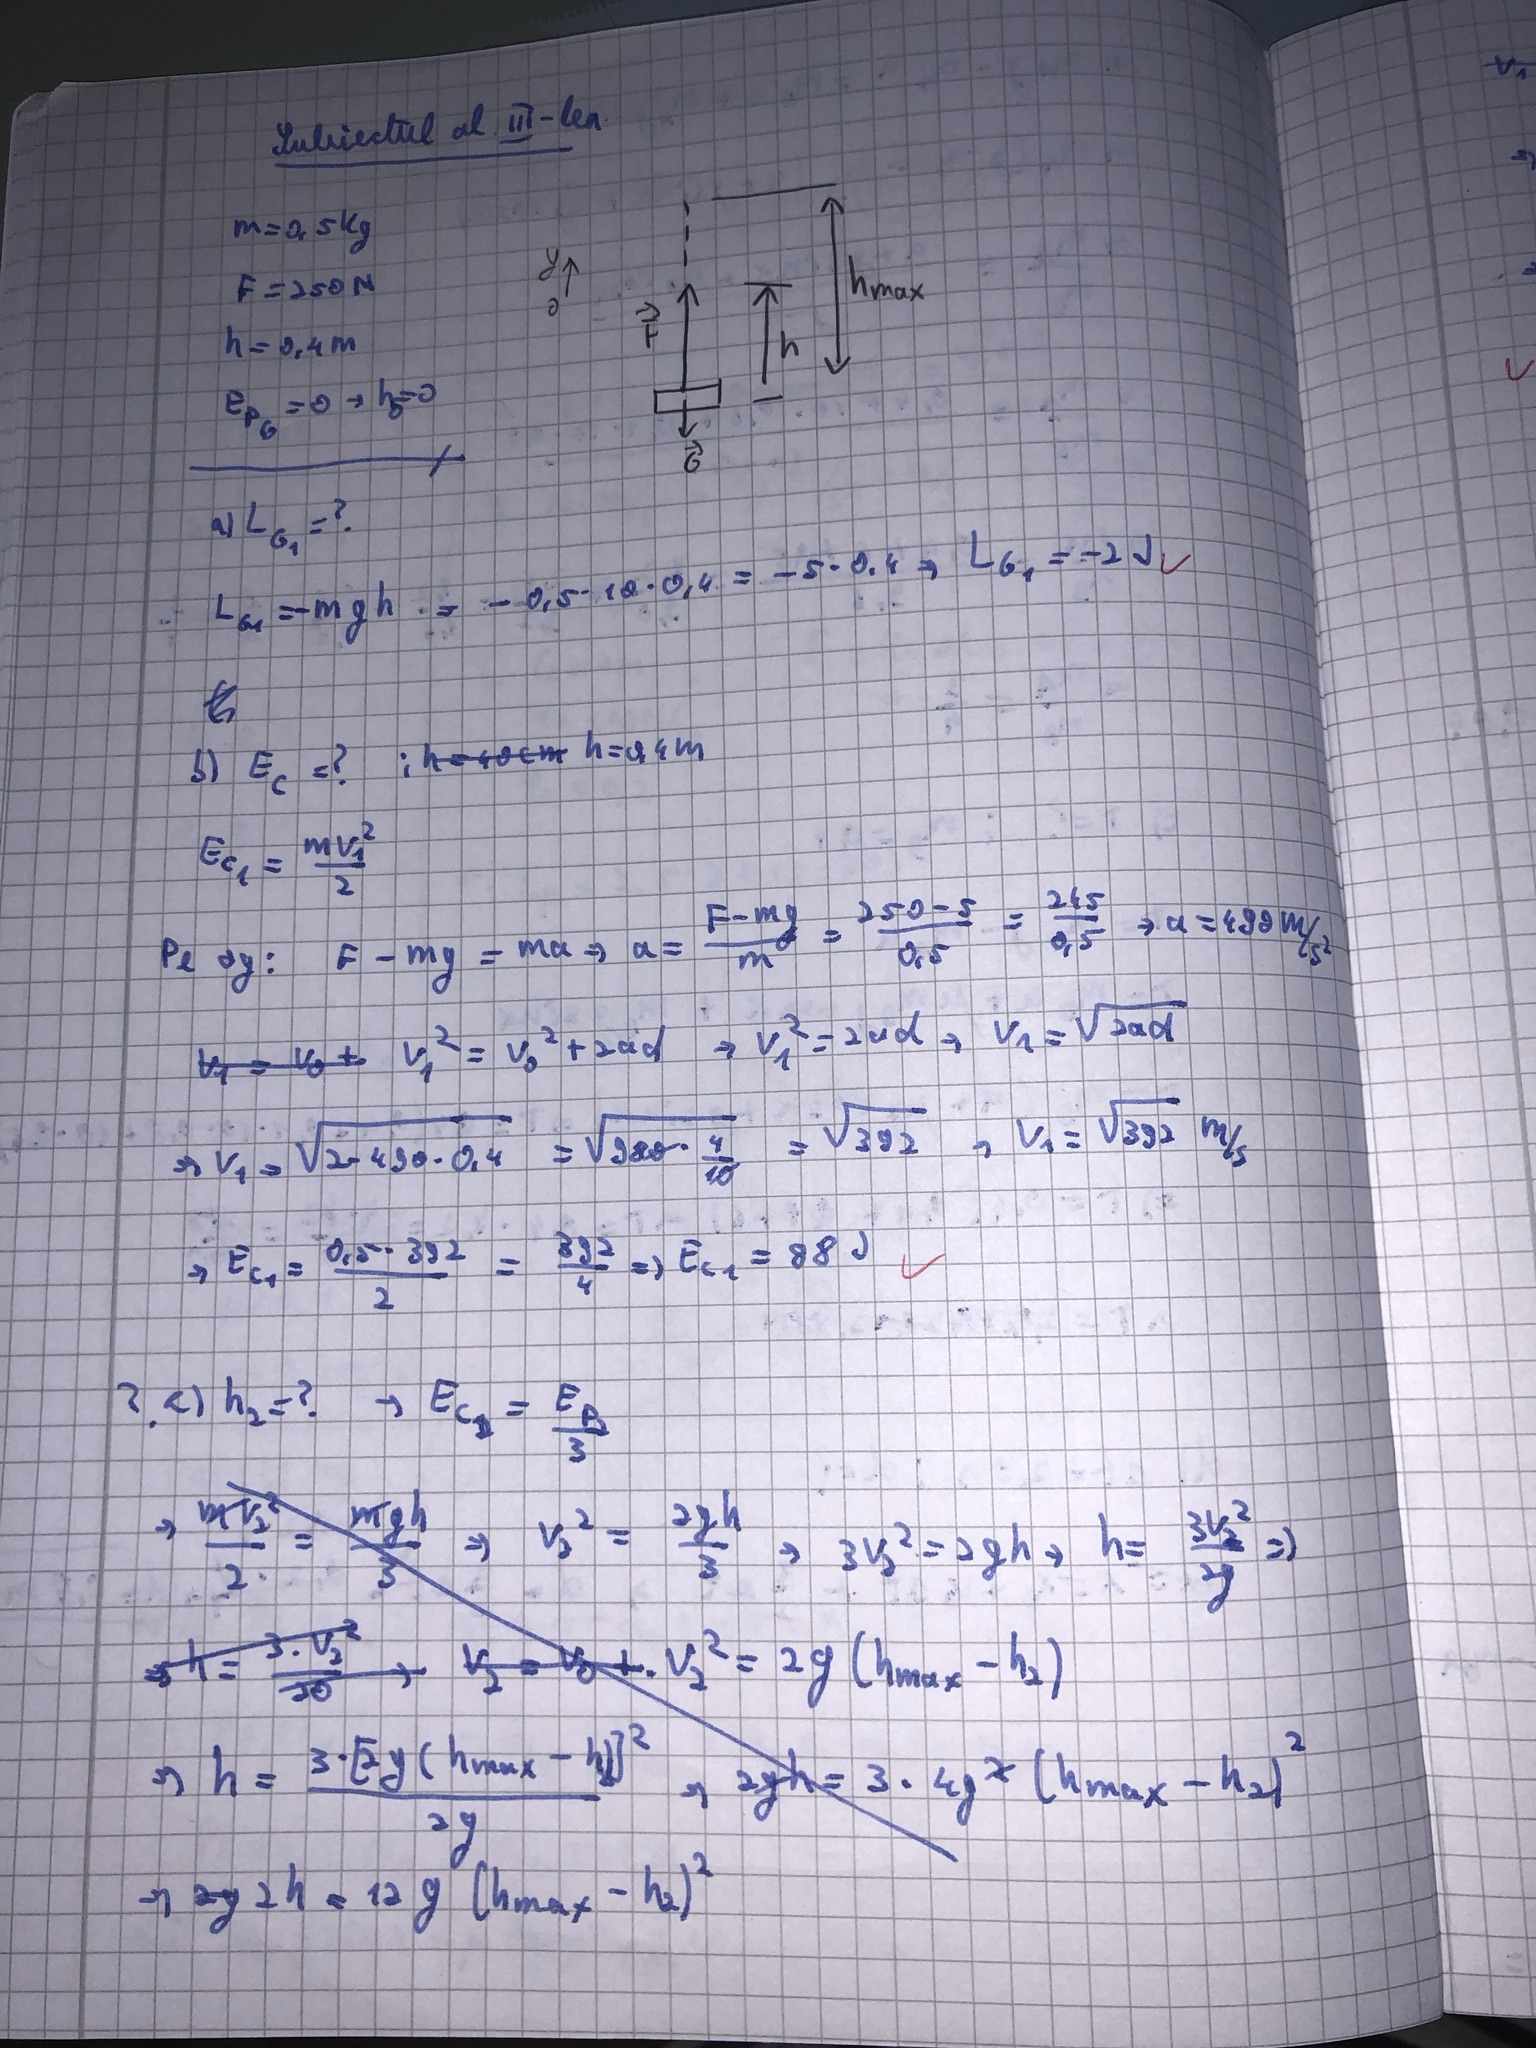 Subiectul al III-lea
m=0,5kg
F=250N
h=0,4m
E_pG=0→h_0=0
y
0
F
h
hmax
G
a) L_G1=?
L_G1=-mgh = -0,5·10·0,4 = -5·0,4 → L_G1=-2J ✓
b) E_c=? ; h=40cm h=0,4m
E_c1 = mv_1²/2
Pe oy: F-mg=ma → a= F-mg/m = 250-5/0,5 = 245/0,5 → a=490m/s²
v_1=v_0+ v_1²=v_0²+2ad → v_1²=2ad → v_1=√2ad
→ v_1=√2·490·0,4 = √980·4/10 = √392 → v_1=√392 m/s
→ E_c1= 0,5·392/2 = 392/4 ⇒ E_c1=98J ✓
?. c) h_2=? → E_c2 = E_p2/3
→ mv_2²/2 = mgh/3 → v_2² = 2gh/3 → 3v_2²=2gh → h= 3v_2²/2g ⇒
⇒ h= 3·v_2²/20 → v_2=v_0+. v_2²=2g(hmax-h_2)
→ h= 3·[2g(hmax-h_2)]²/2g → 2gh=3·4g²(hmax-h_2)²
→ 2g 2h=12g (hmax-h_2)²
v_1
✓